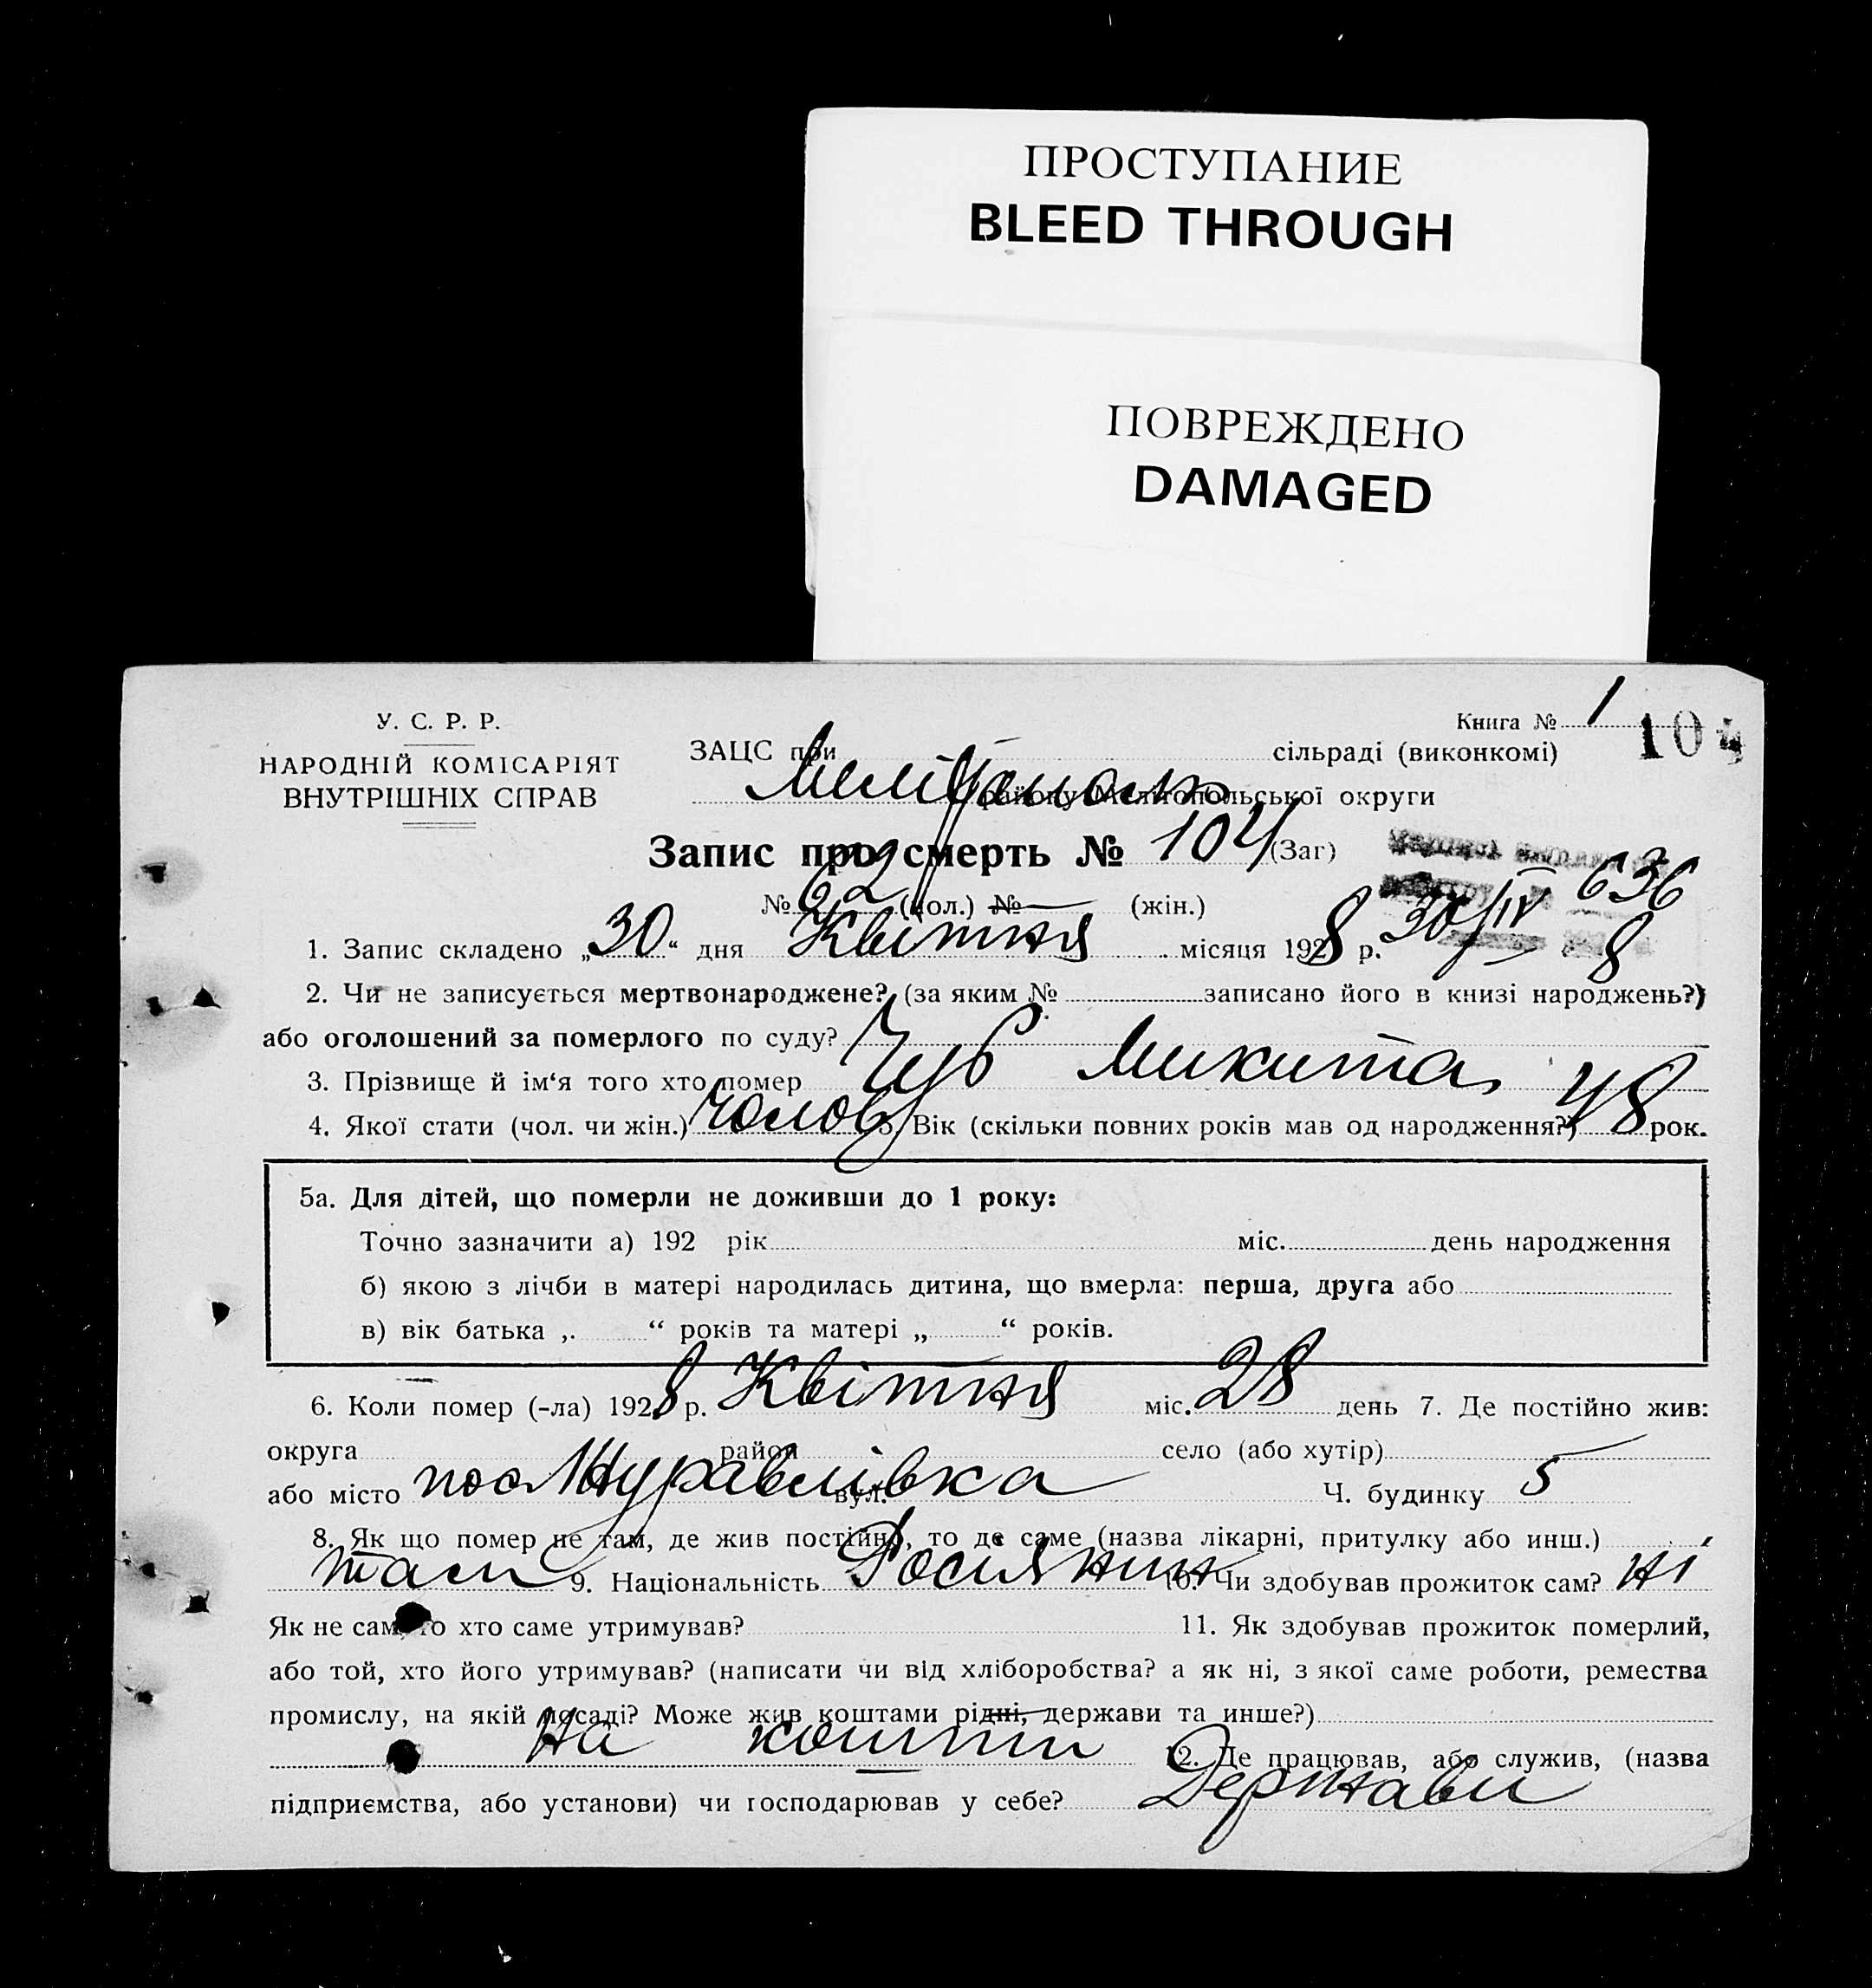 ПРОСТУПАНИЕ
BLEED THROUGH
ПОВРЕЖДЕНО
DAMAGED
У. С. Р. Р.
НАРОДНІЙ КОМІСАРІЯТ
ВНУТРІШНІХ СПРАВ
Книга № 1
104
ЗАЦС при сільраді (виконкомі)
району Мелітопольської округи
Запис про смерть № 104 (Заг)
№ 62 (чол.) № (жін.)
636
30/IV 8
1. Запис складено „30“ дня Квітня місяця 1928 р.
2. Чи не записується мертвонароджене? (за яким № записано його в книзі народжень?)
або оголошений за померлого по суду?
3. Прізвище й ім‘я того хто помер Чуб Микита
4. Якої стати (чол. чи жін.) Чолов 5. Вік (скільки повних років мав од народження?) 48 рок.
5а. Для дітей, що померли не доживши до 1 року:
Точно зазначити а) 192 рік міс. день народження
б) якою з лічби в матері народилась дитина, що вмерла: перша, друга або
в) вік батька „ “ років та матері „ “ років.
6. Коли помер (-ла) 1928 р. Квітня міс. 28 день 7. Де постійно жив:
округа район село (або хутір)
або місто пос Журавлівка вул. Ч. будинку 5
8. Як що помер не там, де жив постійно, то де саме (назва лікарні, притулку або инш.)
там 9. Національність Росіянин 10. Чи здобував прожиток сам? ні
Як не сам, то хто саме утримував? 11. Як здобував прожиток померлий,
або той, хто його утримував? (написати чи від хліборобства? а як ні, з якої саме роботи, ремества
промислу, на якій посаді? Може жив коштами рідні, держави та инше?)
на кошти 12. Де працював, або служив, (назва
підприємства, або установи) чи господарював у себе? Держави